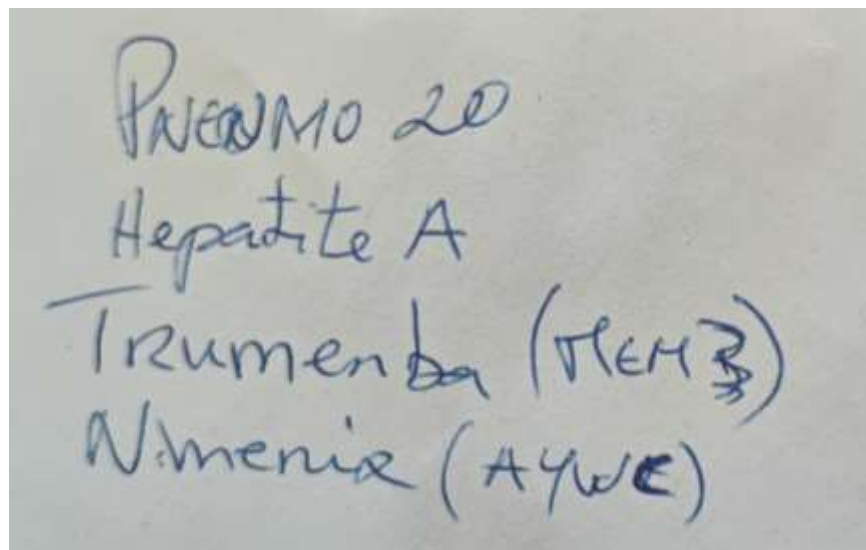 PNEUMO 20
Hepatite A
Trumenba (MEN B)
Nimenix (AYWC)